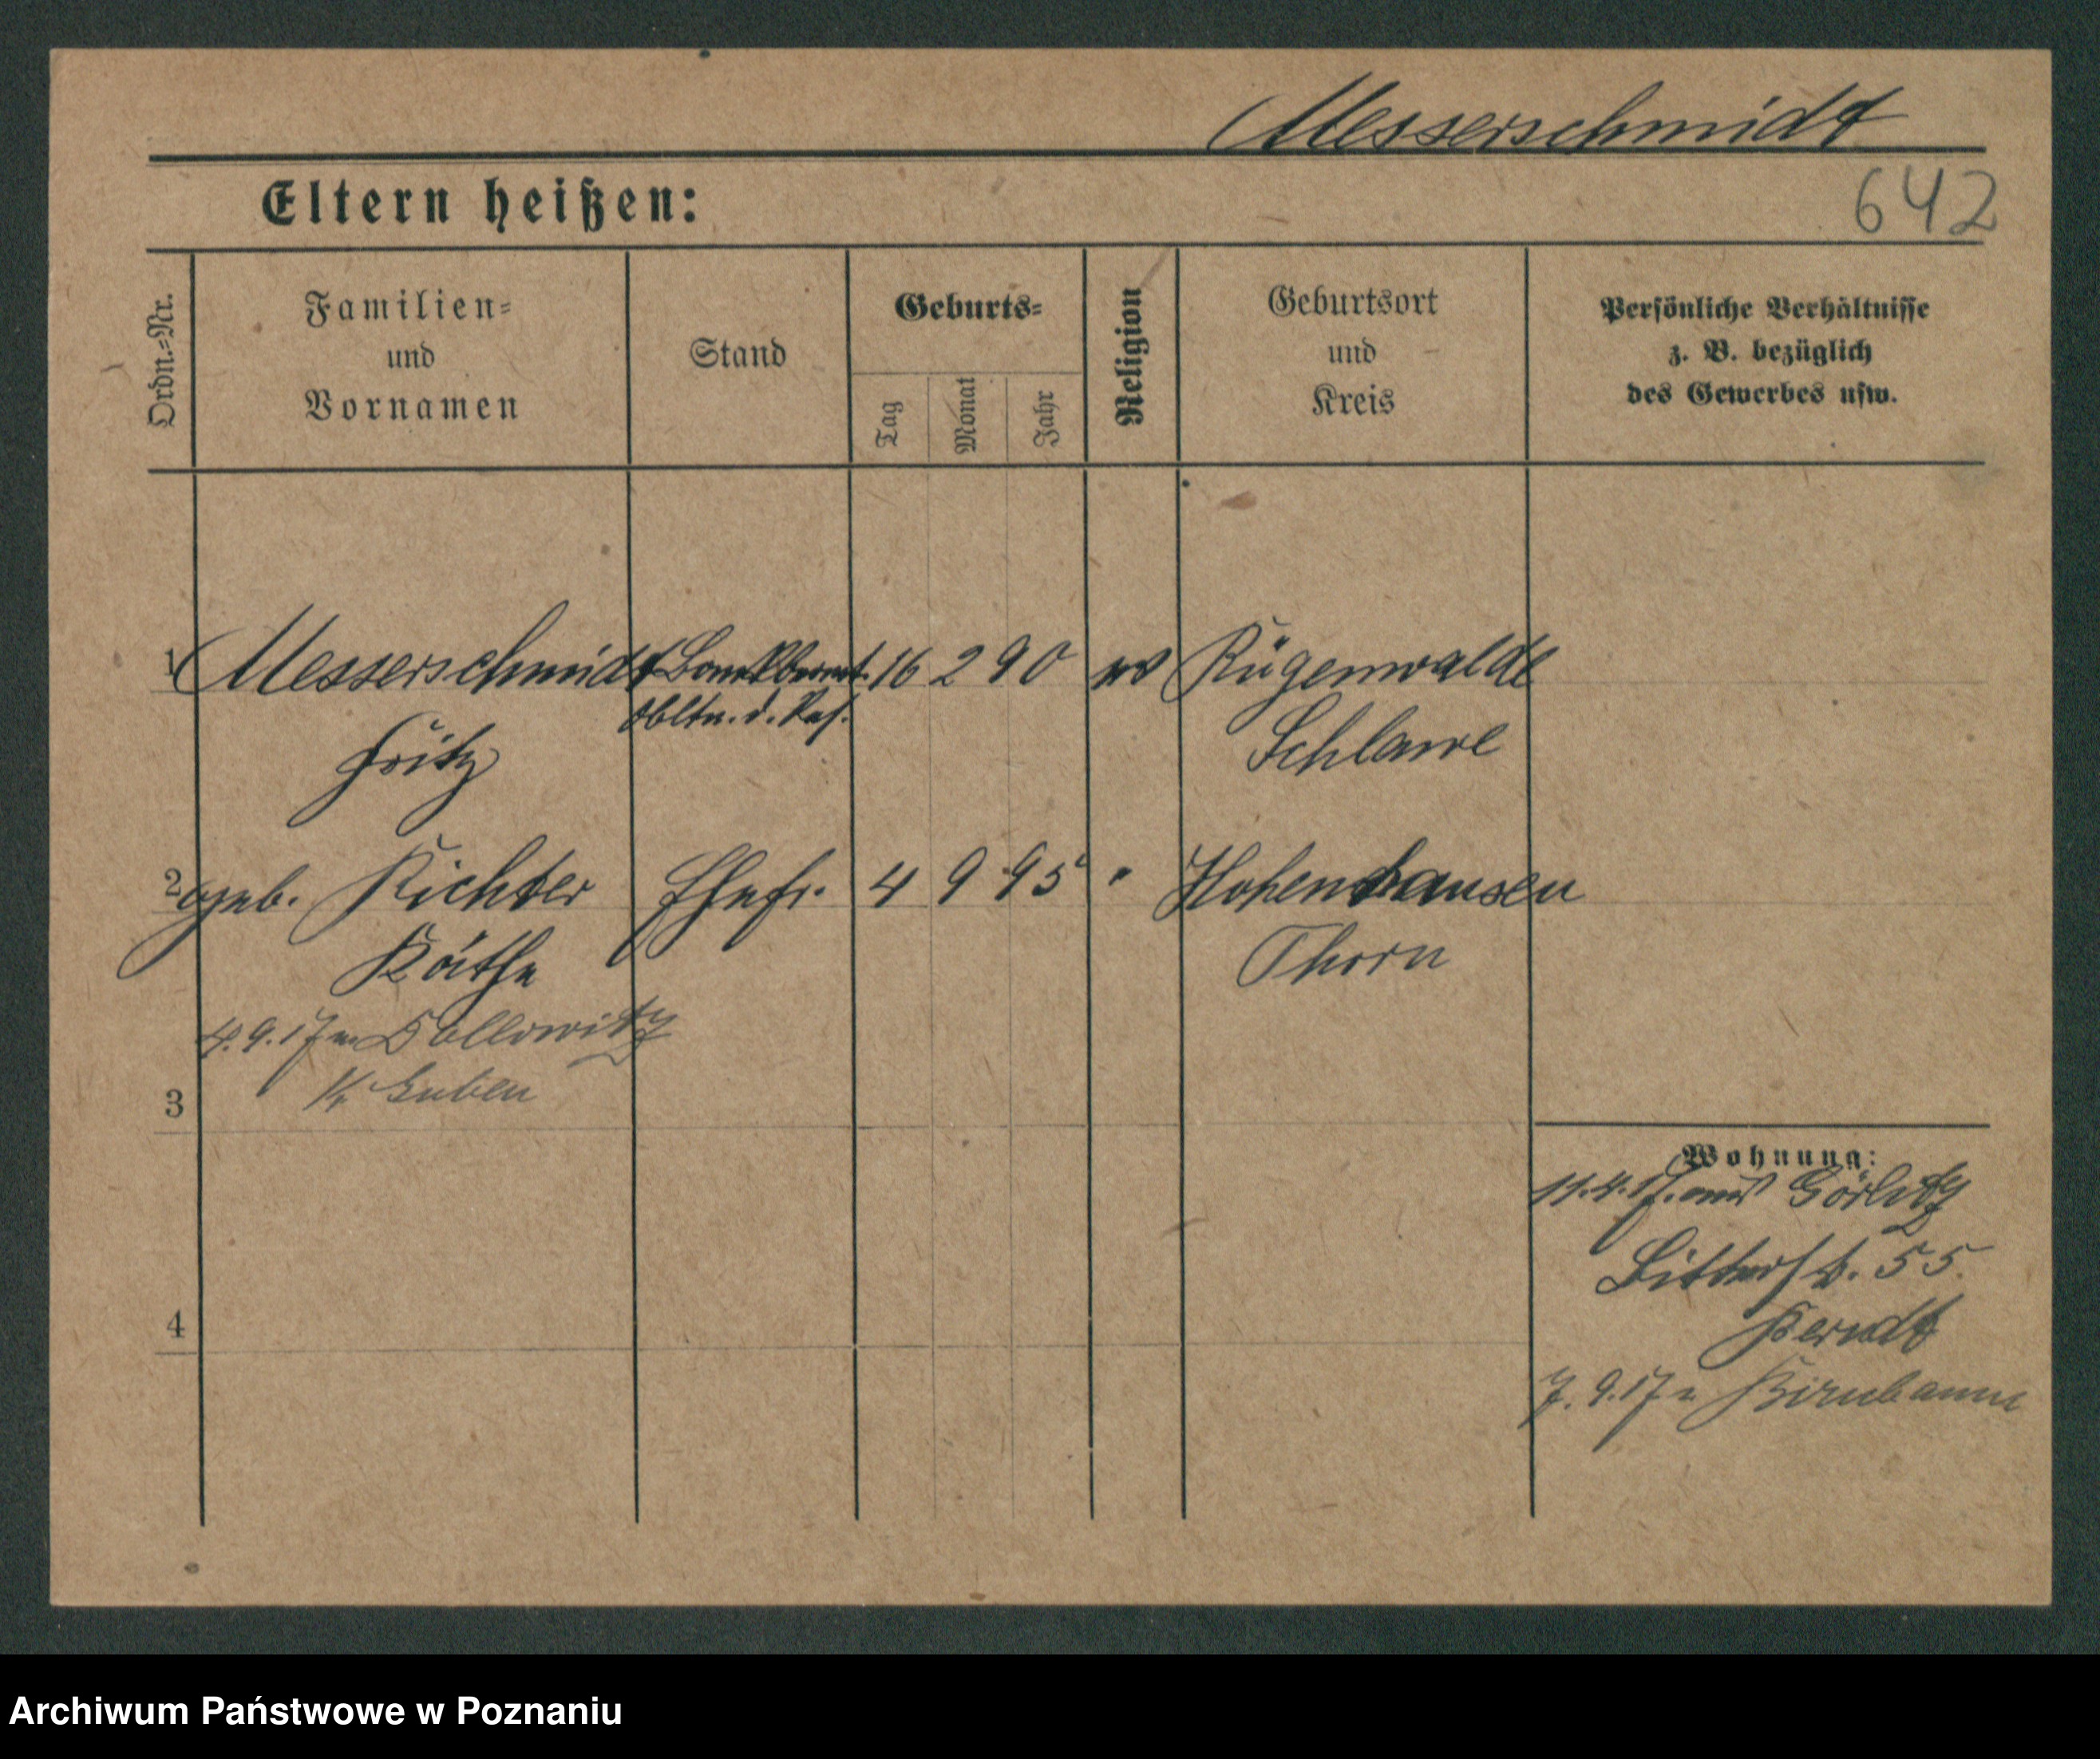 Messerschmidt
Eltern heißen:
642
Ordn.-Nr.
Familien-
und
Vornamen
Stand
Geburts-
Tag
Monat
Jahr
Religion
Geburtsort
und
Kreis
Persönliche Verhältnisse
z. B. bezüglich
des Gewerbes usw.
1 Messerschmidt 16 2 90 ev Rügenwalde
Obltn. d. Res.
Fritz Schlawe
2 geb. Richter Ehefr. 4 9 95 " Hohenhausen
Käthe Thorn
4.9.17 n
Guben
3
Wohnung:
11.4.17. aus Görlitz
Bitterst. 55.
Berndt
7.9.17 n Birnbaum
4
Archiwum Państwowe w Poznaniu